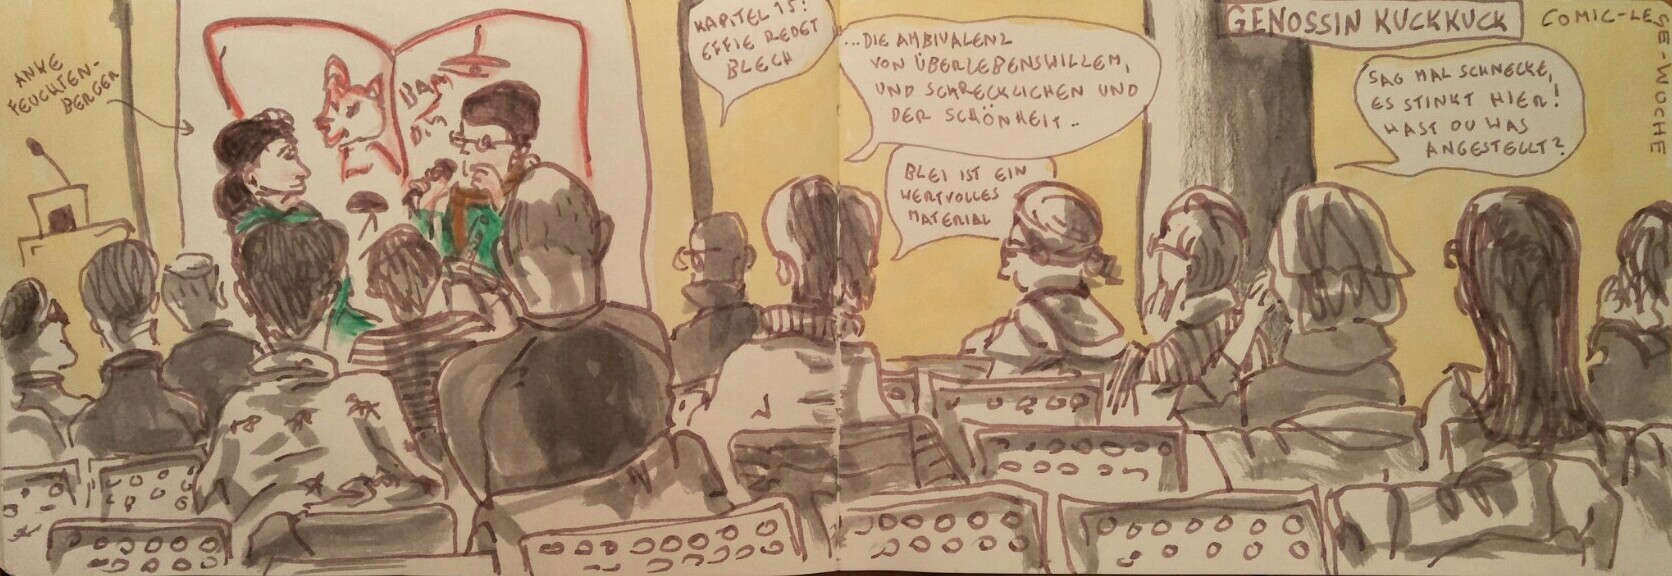 ANKE
FEUCHTEN-
BERGER
BAM
KAPITEL 15:
EFFIE REDET
BLECH
...DIE AMBIVALENZ
VON ÜBERLEBENSWILLEM,
UND SCHRECKLICHEN UND
DER SCHÖNHEIT..
BLEI IST EIN
WERTVOLLES
MATERIAL
GENOSSIN KUCKKUCK
COMIC-LESE-WOCHE
SAG MAL SCHNECKE,
ES STINKT HIER!
HAST DU WAS
ANGESTELLT?